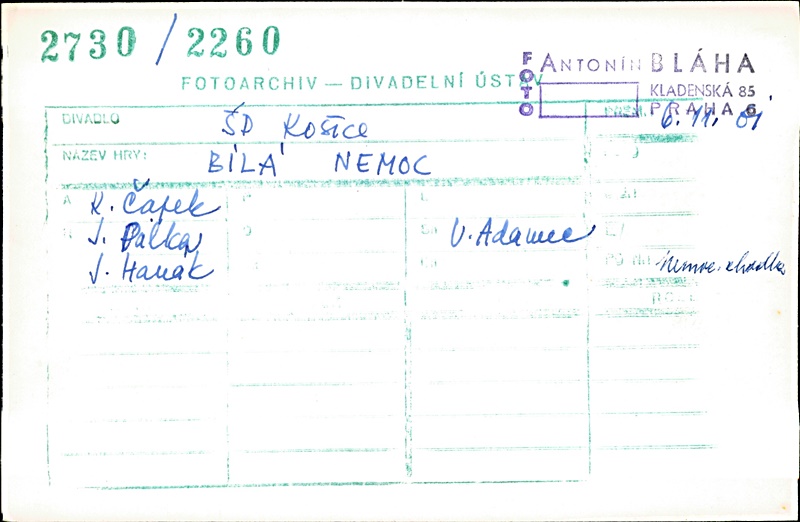 2730 / 2260
FOTO ANTONÍN BLÁHA
KLADENSKÁ 85
PRAHA 6
FOTOARCHIV — DIVADELNÍ ÚSTAV
DIVADLO ŠD KOŠICE 6. 11. 81
NÁZEV HRY: BÍLÁ NEMOC
A K. Čapek
J. Pálka V. Adamec
J. Hanák